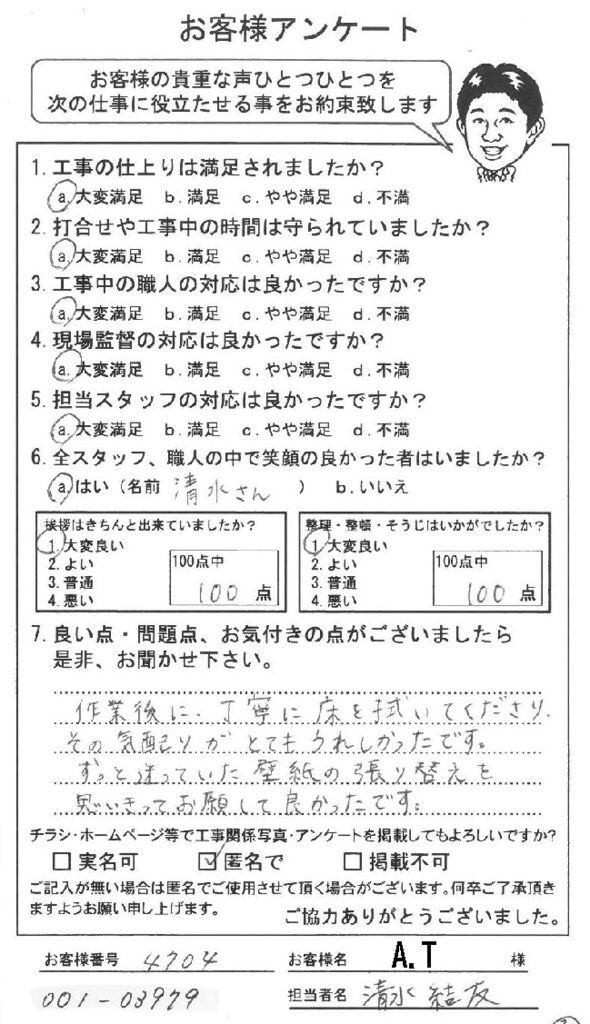 お客様アンケート
お客様の貴重な声ひとつひとつを
次の仕事に役立たせる事をお約束致します
1. 工事の仕上りは満足されましたか？
a.大変満足 b.満足 c.やや満足 d.不満
2. 打合せや工事中の時間は守られていましたか？
a.大変満足 b.満足 c.やや満足 d.不満
3. 工事中の職人の対応は良かったですか？
a.大変満足 b.満足 c.やや満足 d.不満
4. 現場監督の対応は良かったですか？
a.大変満足 b.満足 c.やや満足 d.不満
5. 担当スタッフの対応は良かったですか？
a.大変満足 b.満足 c.やや満足 d.不満
6. 全スタッフ、職人の中で笑顔の良かった者はいましたか？
a.はい（名前 清水さん ） b.いいえ
挨拶はきちんと出来ていましたか？
1.大変良い
2.よい
3.普通
4.悪い
100点中
100 点
整理・整頓・そうじはいかがでしたか？
1.大変良い
2.よい
3.普通
4.悪い
100点中
100 点
7. 良い点・問題点、お気付きの点がございましたら
是非、お聞かせ下さい。
作業後に、丁寧に床を拭いてくださり、
その気配りがとてもうれしかったです。
ずっと迷っていた壁紙の張り替えを
思いきってお願いして良かったです。
チラシ・ホームページ等で工事関係写真・アンケートを掲載してもよろしいですか？
□ 実名可 ☑ 匿名で □ 掲載不可
ご記入が無い場合は匿名でご使用させて頂く場合がございます。何卒ご了承頂き
ますようお願い申し上げます。
ご協力ありがとうございました。
お客様番号 4704 お客様名 A.T 様
001-03979 担当者名 清水 結友